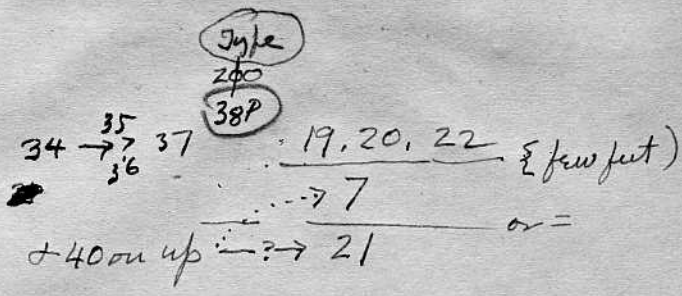 Type
200
38P
35
34 → > 37 19, 20, 22 { few feet )
36
⇢ 7
or =
& 40 on up — ? → 21